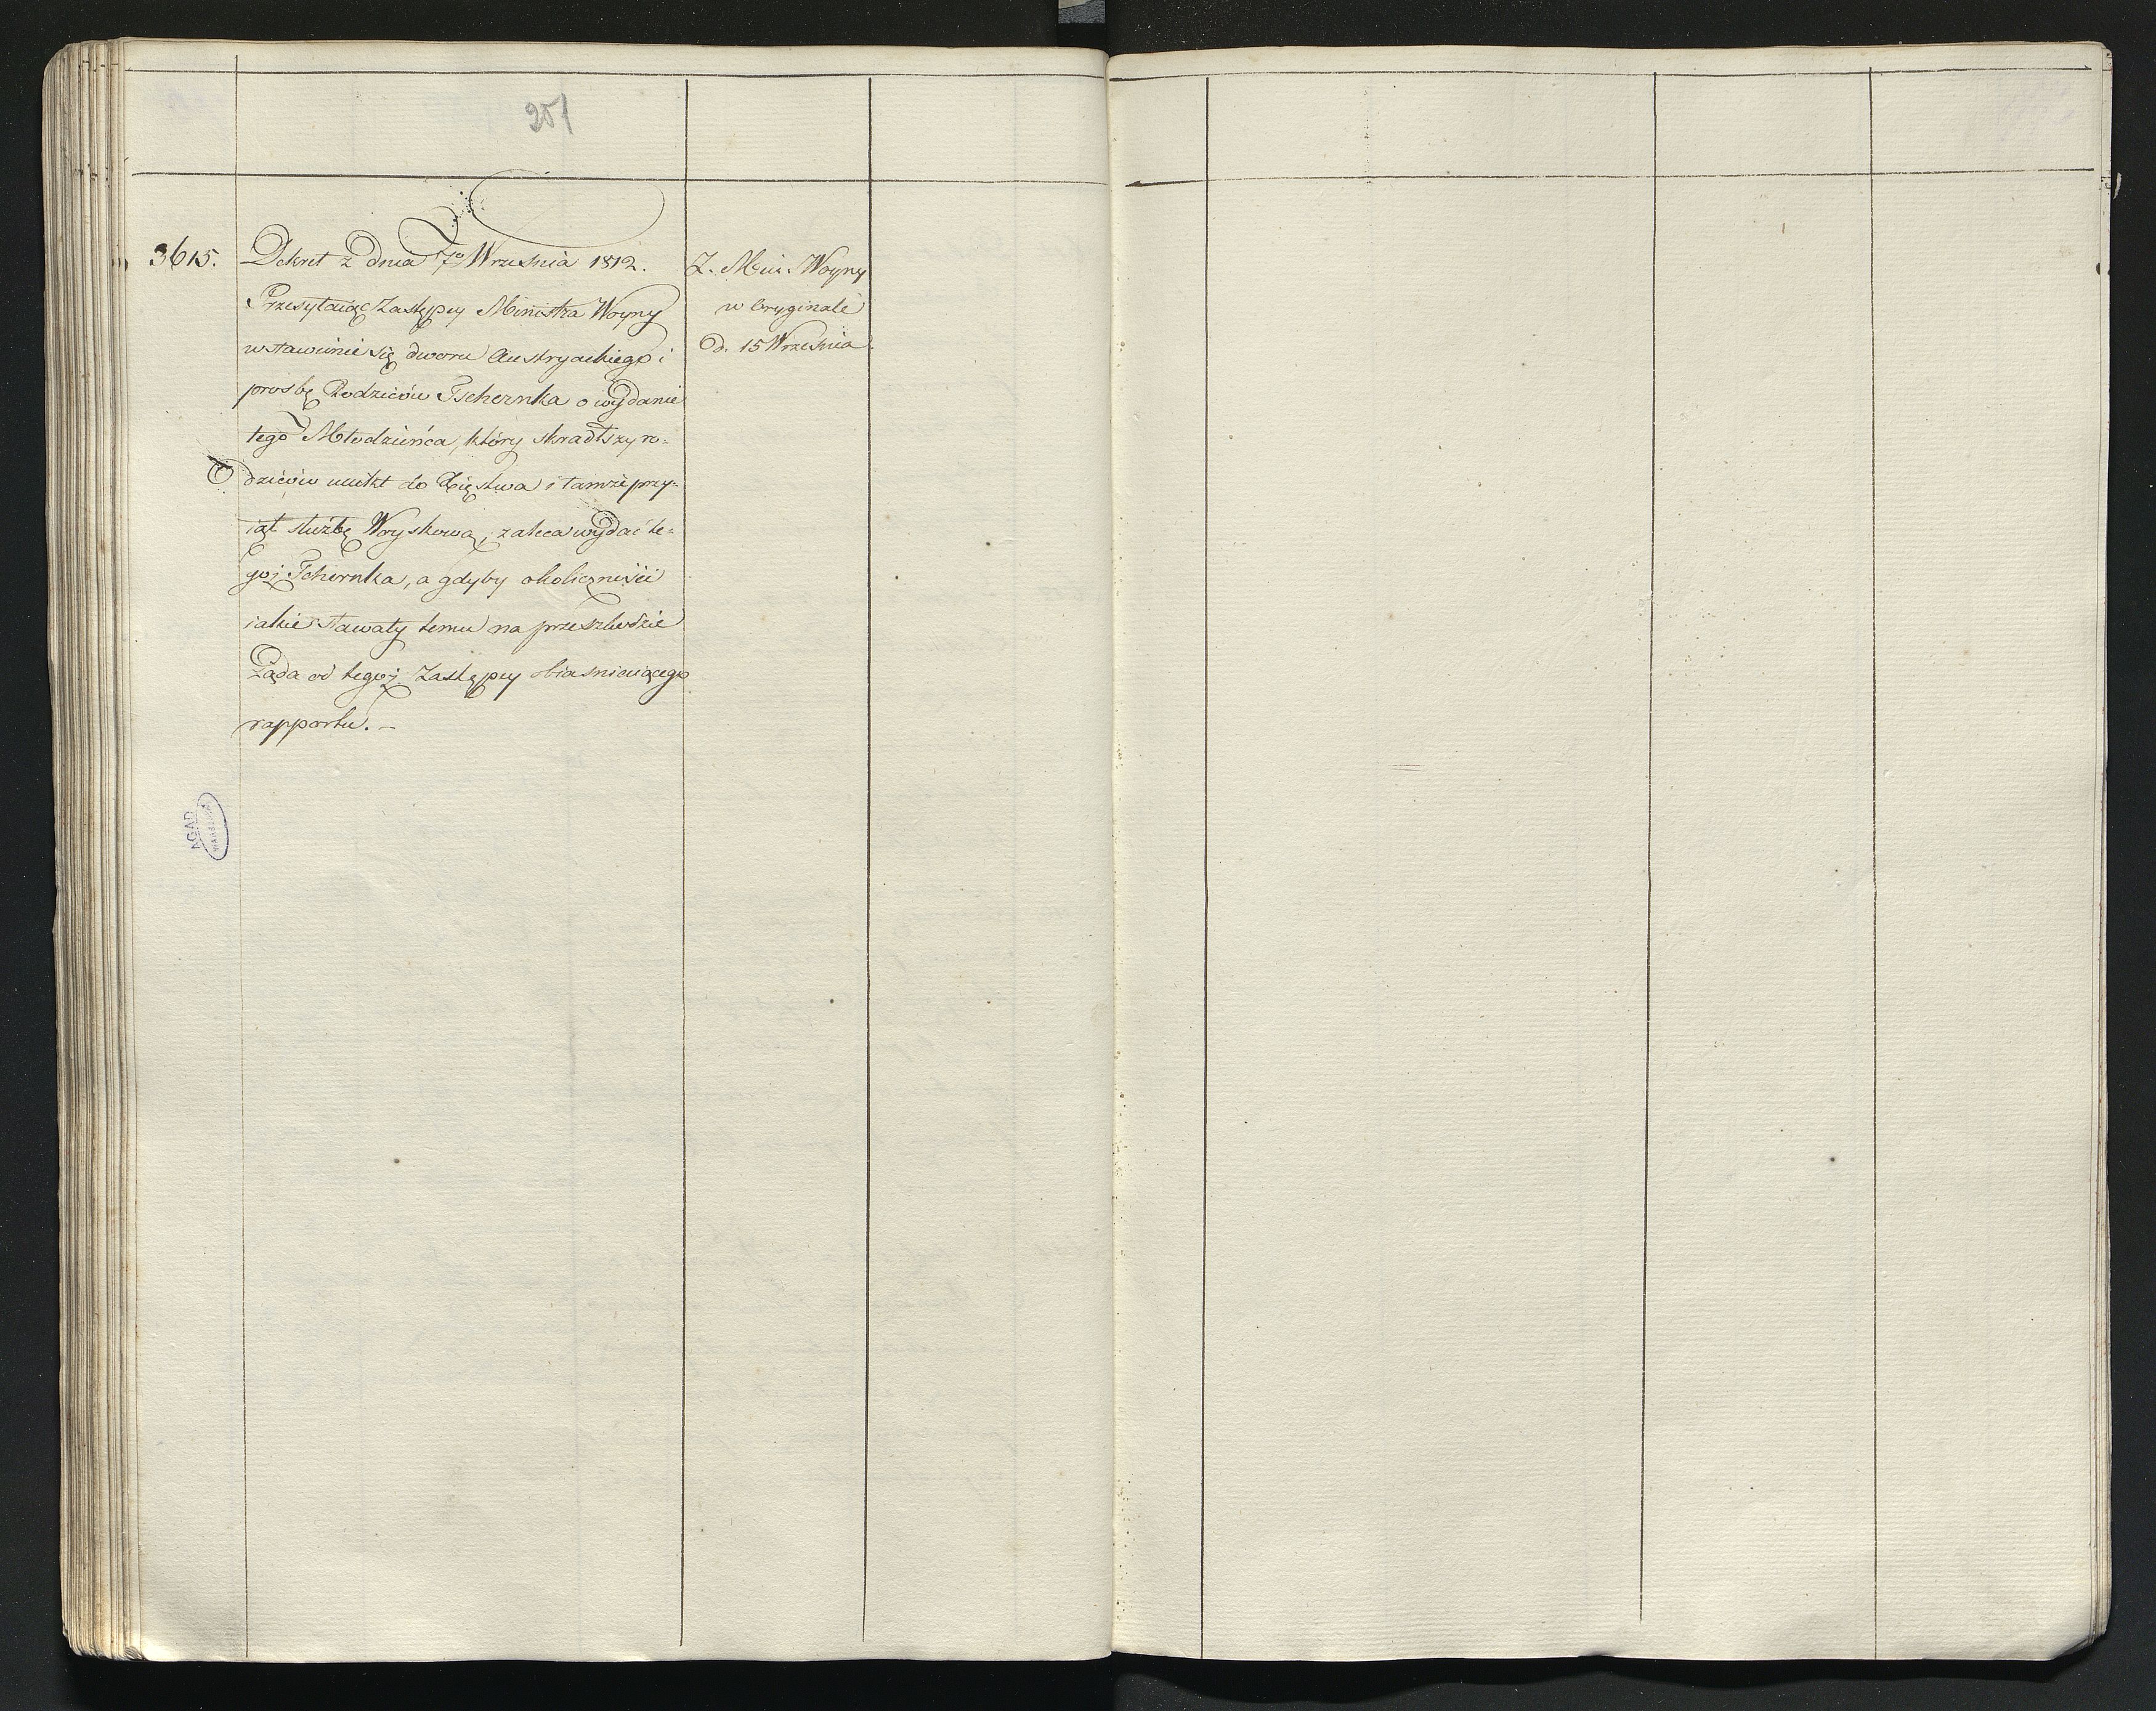 251
3615.
Dekret z dnia 7º Września 1812.
Przesyłaiąc Zastępcy Ministra Woyny
wstawienie się dworu Austryackiego i
prosbę Rodziców Tschernka o wydanie
tego Młodzieńca, który skradłszy ro=
dziców uciekł do Xięstwa i tamże przy=
iął służbę Woyskową, zaleca wydać te=
goż Tchernka, a gdyby okoliczności
iakie stawały temu na przeszkodzie
Żąda od tegoż Zastępcy obiasniaiącego
rapportu. –
Z. Min. Woyny
w Oryginale
d. 15 Września
AGAD
WARSZAWA